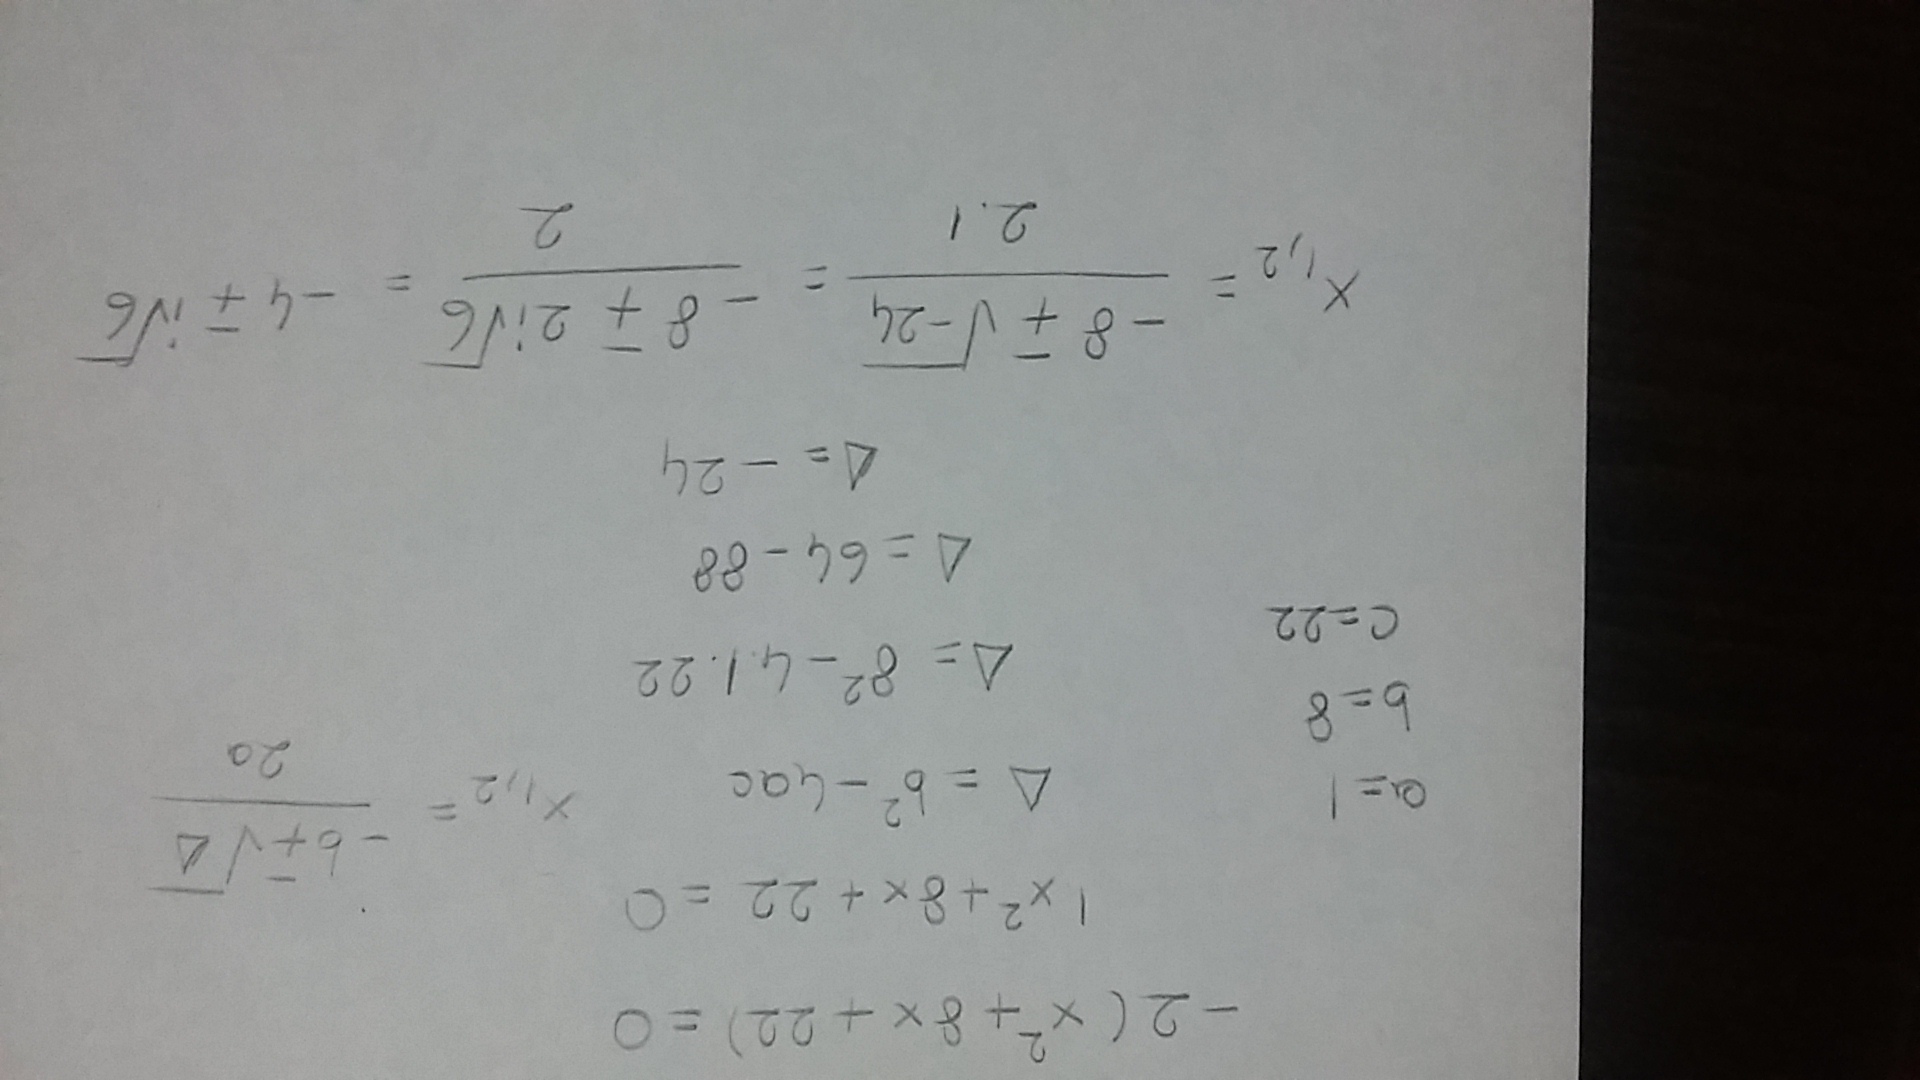 -2(x²+8x+22)=0
1x²+8x+22=0
a=1
b=8
c=22
Δ=b²-4ac
x₁,₂=(-b∓√Δ)/2a
Δ=8²-4.1.22
Δ=64-88
Δ=-24
x₁,₂=(-8∓√-24)/2.1=(-8∓2i√6)/2=-4∓i√6